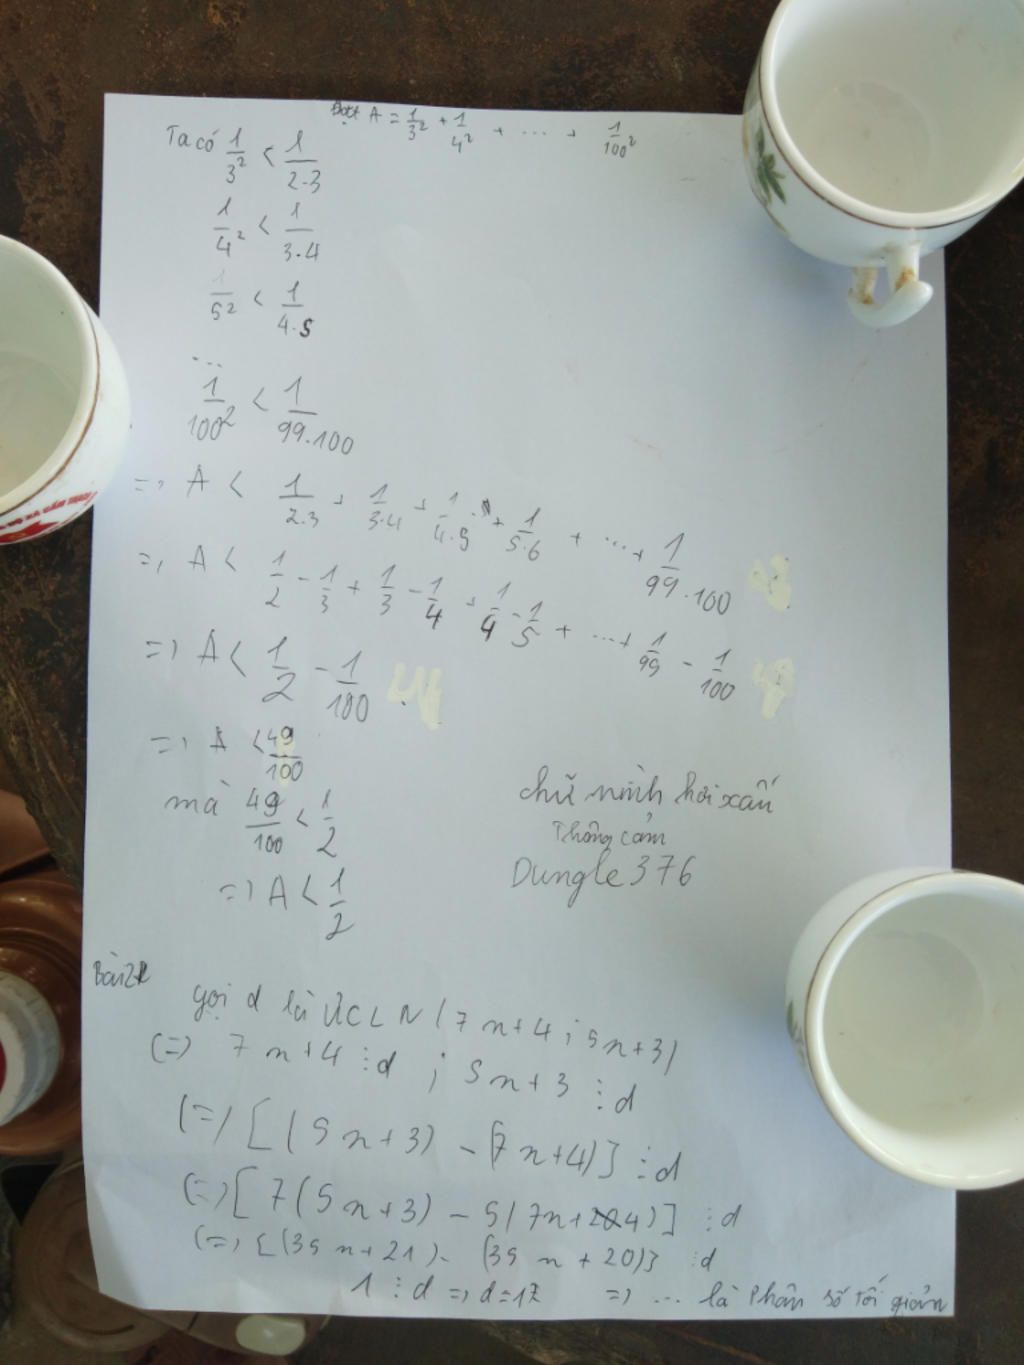 Đặt A = 1/3² + 1/4² + ... + 1/100²
Ta có 1/3² < 1/2.3
1/4² < 1/3.4
1/5² < 1/4.5
...
1/100² < 1/99.100
=> A < 1/2.3 + 1/3.4 + 1/4.5 + 1/5.6 + ... + 1/99.100
=> A < 1/2 - 1/3 + 1/3 - 1/4 + 1/4 - 1/5 + ... + 1/99 - 1/100
=> A < 1/2 - 1/100
=> A < 49/100
mà 49/100 < 1/2
=> A < 1/2
chữ mình hơi xấu
Thông cảm
Dungle376
Bài 2
gọi d là ƯCLN (7n+4 ; 5n+3)
(=) 7n+4 ⋮ d ; 5n+3 ⋮ d
(=) [(5n+3) - (7n+4)] ⋮ d
(=) [7(5n+3) - 5(7n+4)] ⋮ d
(=) [(35n+21) - (35n+20)] ⋮ d
1 ⋮ d => d=1 => ... là phân số tối giản